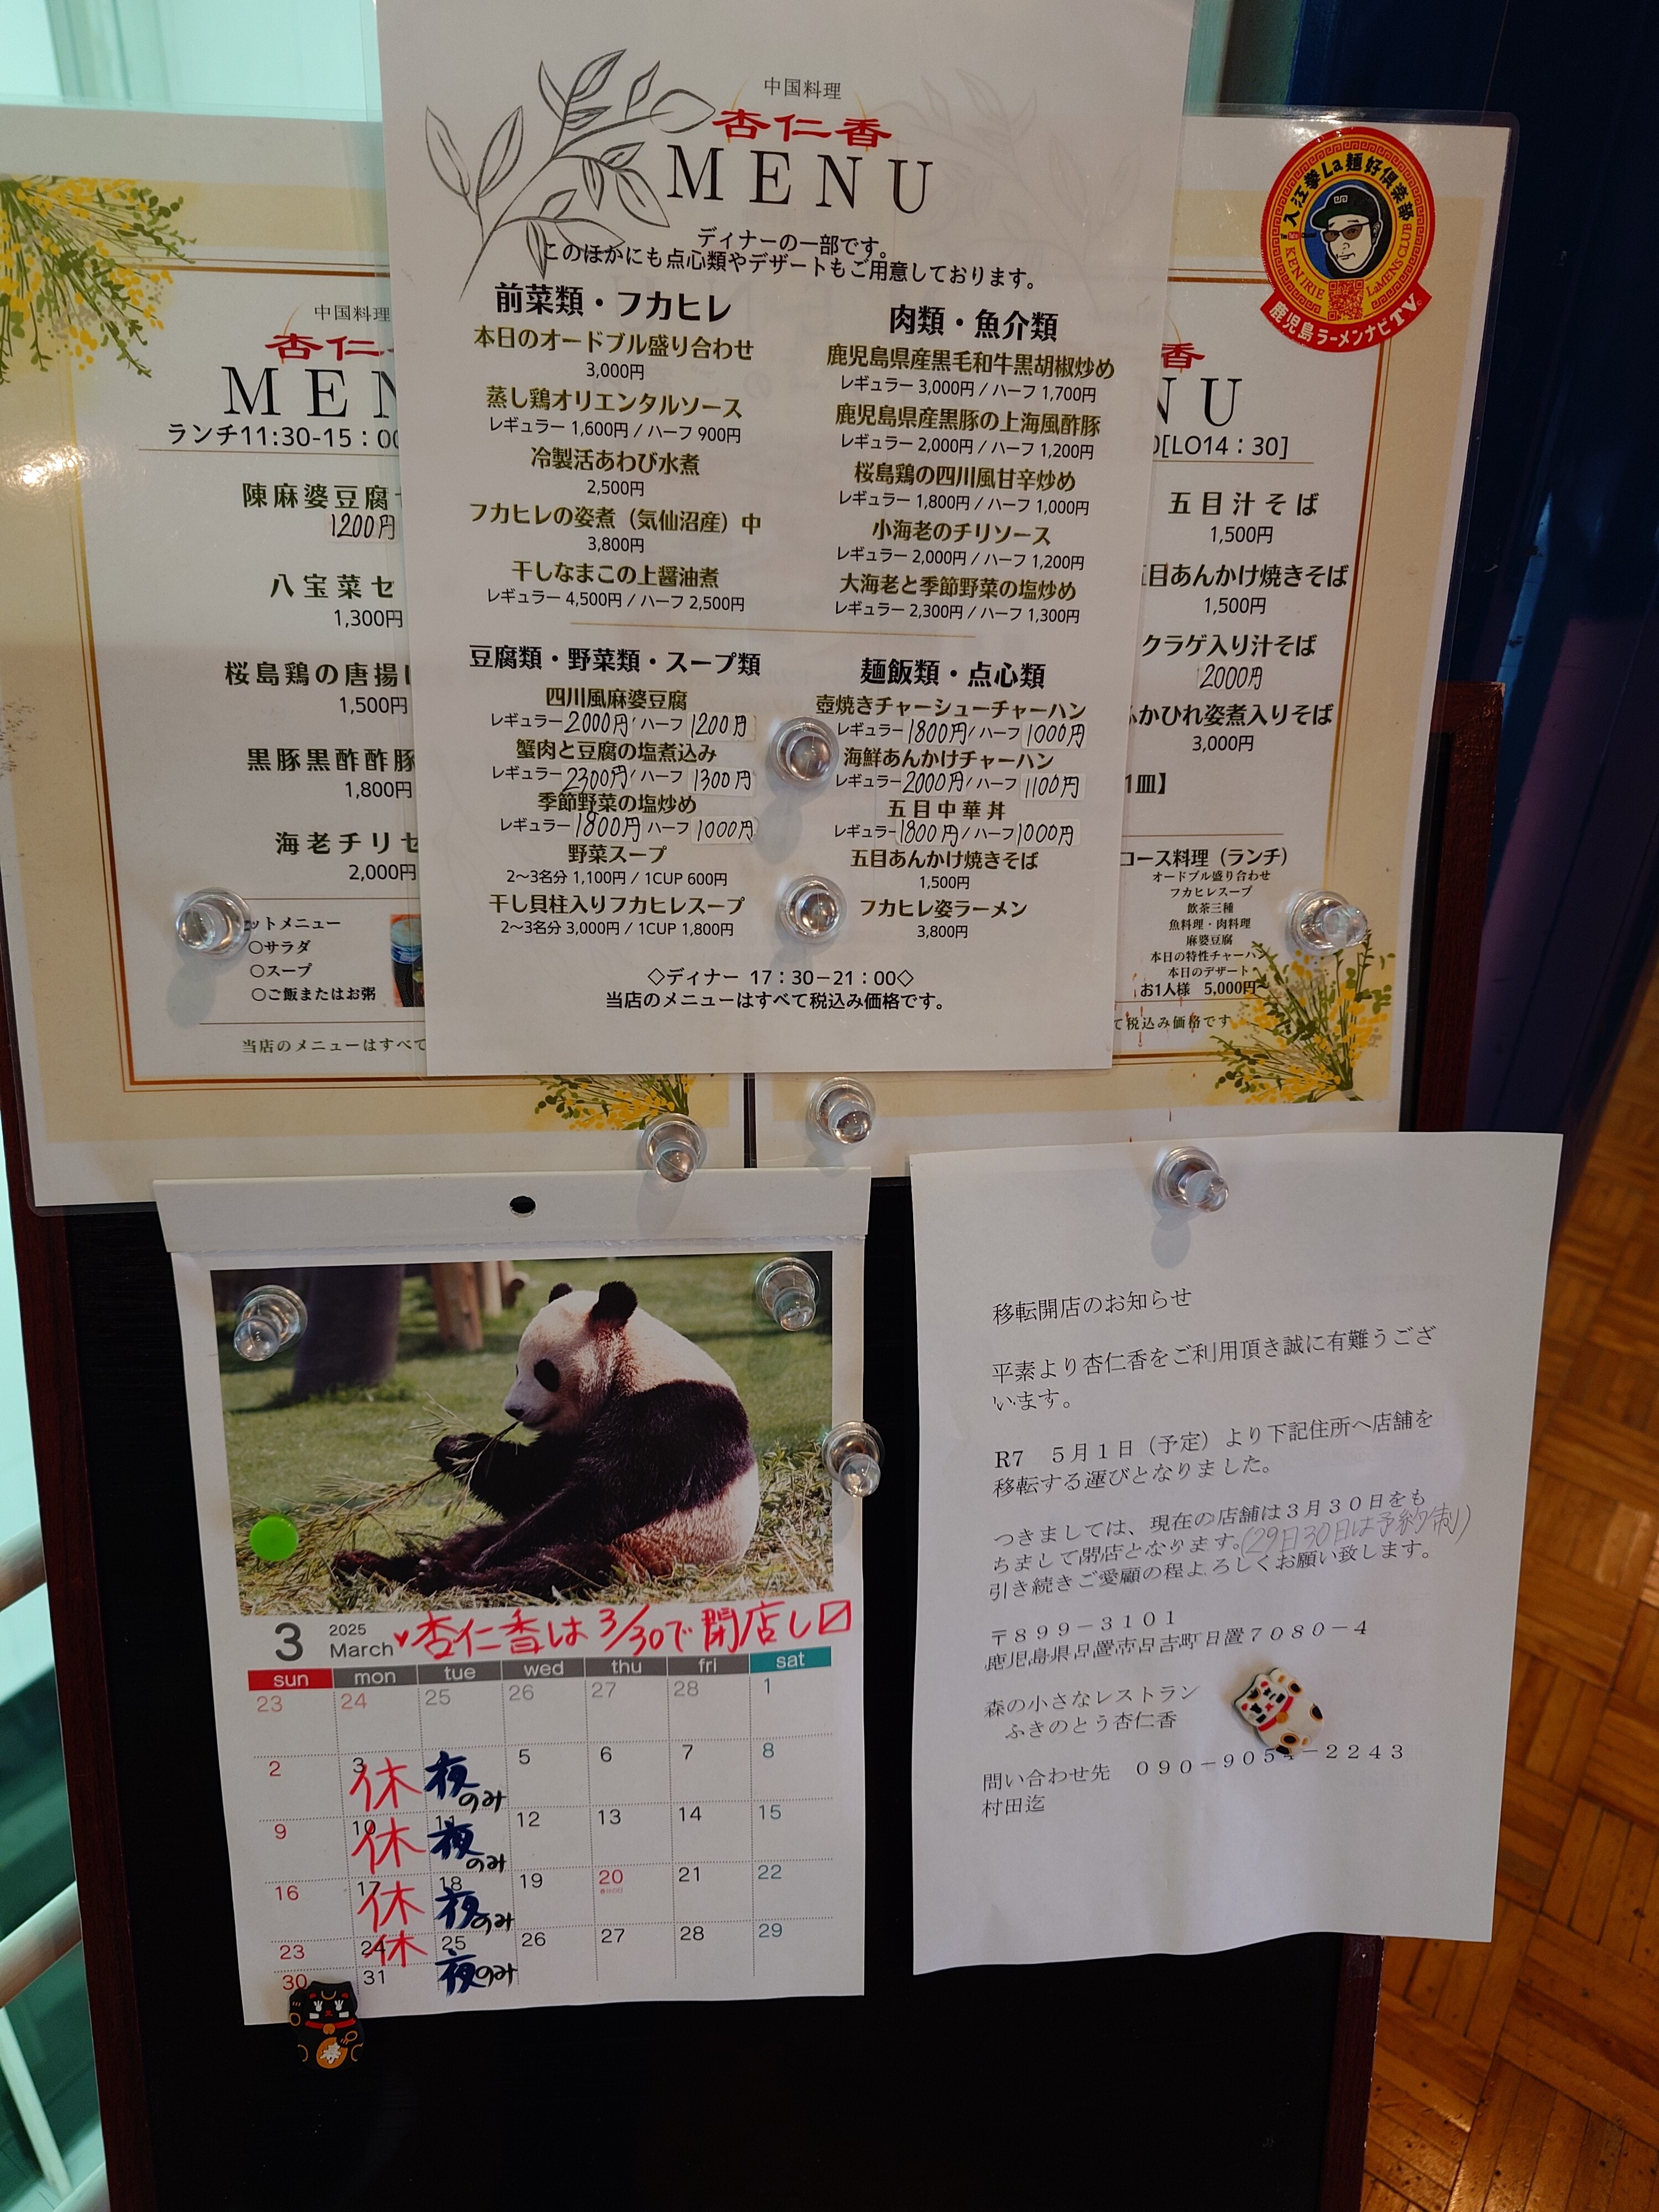 中国料理
杏仁香
MENU
ディナーの一部です。
このほかにも点心類やデザートもご用意しております。
前菜類・フカヒレ
本日のオードブル盛り合わせ
3,000円
蒸し鶏オリエンタルソース
レギュラー 1,600円 / ハーフ 900円
冷製活あわび水煮
2,500円
フカヒレの姿煮（気仙沼産）中
3,800円
干しなまこの上醤油煮
レギュラー 4,500円 / ハーフ 2,500円
肉類・魚介類
鹿児島県産黒毛和牛黒胡椒炒め
レギュラー 3,000円 / ハーフ 1,700円
鹿児島県産黒豚の上海風酢豚
レギュラー 2,000円 / ハーフ 1,200円
桜島鶏の四川風甘辛炒め
レギュラー 1,800円 / ハーフ 1,000円
小海老のチリソース
レギュラー 2,000円 / ハーフ 1,200円
大海老と季節野菜の塩炒め
レギュラー 2,300円 / ハーフ 1,300円
豆腐類・野菜類・スープ類
四川風麻婆豆腐
レギュラー 2000円 / ハーフ 1200円
蟹肉と豆腐の塩煮込み
レギュラー 2300円 / ハーフ 1300円
季節野菜の塩炒め
レギュラー 1800円 ハーフ 1000円
野菜スープ
2〜3名分 1,100円 / 1CUP 600円
干し貝柱入りフカヒレスープ
2〜3名分 3,000円 / 1CUP 1,800円
麺飯類・点心類
壺焼きチャーシューチャーハン
レギュラー 1800円 / ハーフ 1000円
海鮮あんかけチャーハン
レギュラー 2000円 / ハーフ 1100円
五目中華丼
レギュラー 1800円 / ハーフ 1000円
五目あんかけ焼きそば
1,500円
フカヒレ姿ラーメン
3,800円
◇ディナー 17：30－21：00◇
当店のメニューはすべて税込み価格です。
中国料理
杏仁
MEN
ランチ11:30-15：00
陳麻婆豆腐
1200円
八宝菜セ
1,300円
桜島鶏の唐揚
1,500円
黒豚黒酢酢豚
1,800円
海老チリセ
2,000円
ットメニュー
○サラダ
○スープ
○ご飯またはお粥
当店のメニューはすべて
香
NU
[LO14：30]
五目汁そば
1,500円
目あんかけ焼きそば
1,500円
クラゲ入り汁そば
2000円
かひれ姿煮入りそば
3,000円
1皿】
コース料理（ランチ）
オードブル盛り合わせ
フカヒレスープ
飲茶三種
魚料理・肉料理
麻婆豆腐
本日の特性チャーハン
本日のデザート
お1人様 5,000円
税込み価格です
入江拳La麺好倶楽部
KEN IRIE
LaMENS CLUB
鹿児島ラーメンナビTV
3
2025
March
♥杏仁香は3/30で閉店し〼
sun mon tue wed thu fri sat
23 24 25 26 27 28 1
2 3 休 夜のみ 5 6 7 8
9 10 休 11 夜のみ 12 13 14 15
16 17 休 18 夜のみ 19 20 21 22
23 24 休 25 夜のみ 26 27 28 29
30 31
移転開店のお知らせ
平素より杏仁香をご利用頂き誠に有難うござ
います。
R7　５月１日（予定）より下記住所へ店舗を
移転する運びとなりました。
つきましては、現在の店舗は３月３０日をも
ちまして閉店となります。(29日30日は予約制)
引き続きご愛顧の程よろしくお願い致します。
〒８９９－３１０１
鹿児島県日置市日吉町日置７０８０－４
森の小さなレストラン
ふきのとう杏仁香
問い合わせ先　０９０－９０５４－２２４３
村田迄